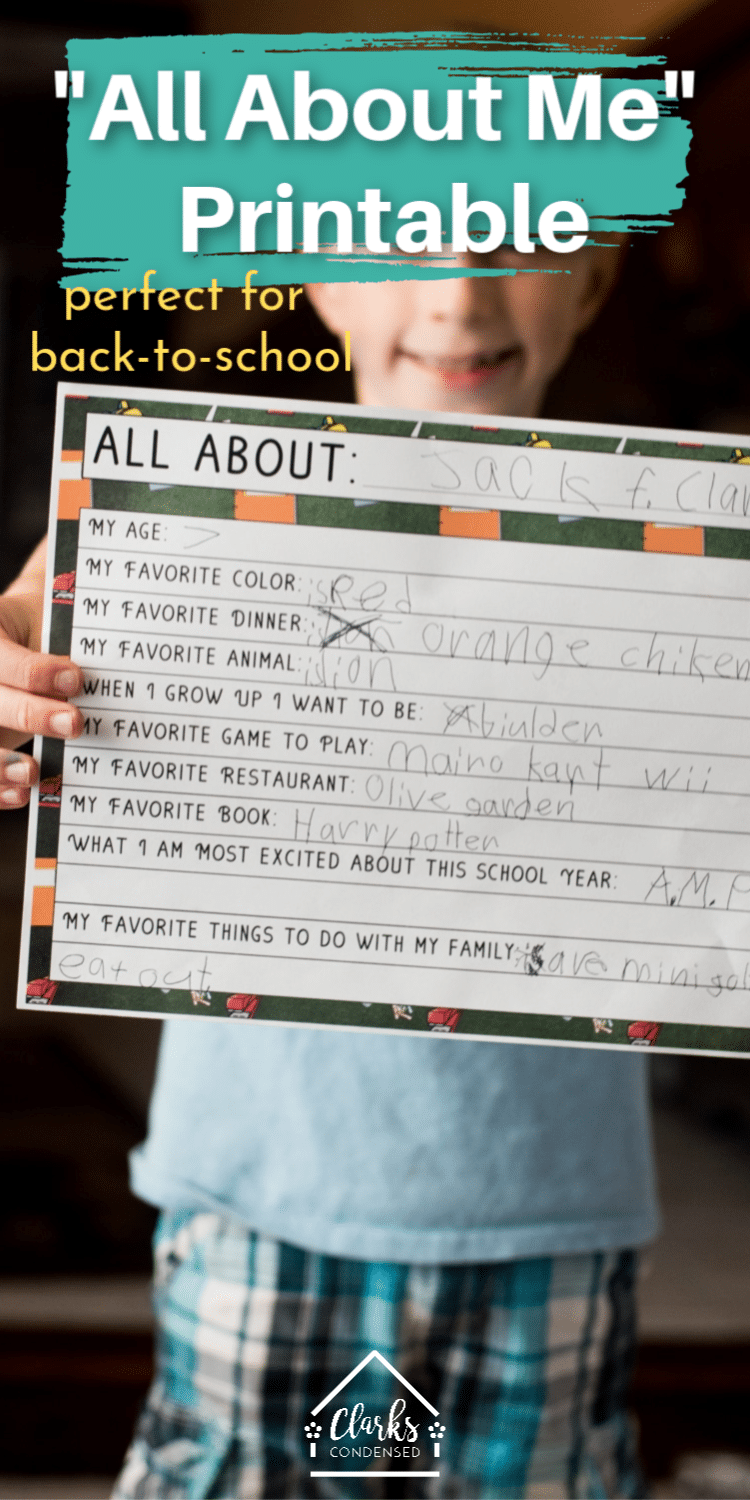 "All About Me"
Printable
perfect for
back-to-school
ALL ABOUT: Jack f. Clar
MY AGE: 7
MY FAVORITE COLOR: is Red
MY FAVORITE DINNER: orange chiken
MY FAVORITE ANIMAL: is lion
WHEN I GROW UP I WANT TO BE: Abiulden
MY FAVORITE GAME TO PLAY: Maino kart wii
MY FAVORITE RESTAURANT: Olive garden
MY FAVORITE BOOK: Harry potten
WHAT I AM MOST EXCITED ABOUT THIS SCHOOL YEAR: A.M.P
MY FAVORITE THINGS TO DO WITH MY FAMILY: are minigol
eat out
Clarks
CONDENSED